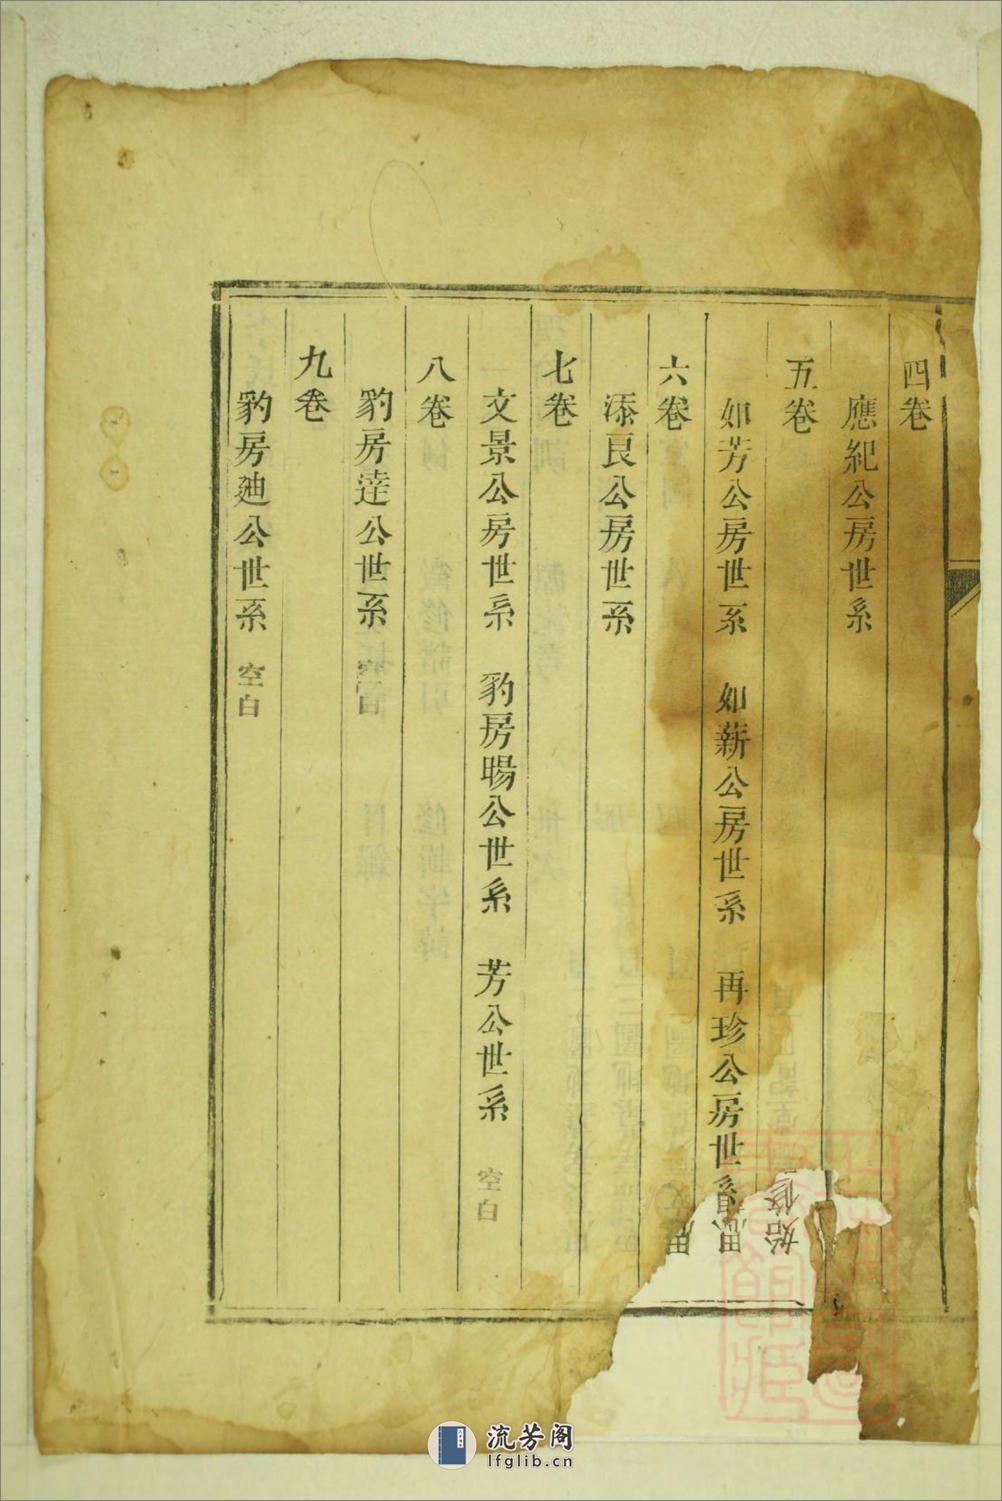 四卷
應紀公房世系
五卷
如芳公房世系 如薪公房世系 再珍公房世系
六卷
添良公房世系
七卷
文景公房世系 豹房暘公世系 芳公世系 空白
八卷
豹房逵公世系 空白
九卷
豹房廸公世系 空白
流芳阁
lfglib.cn